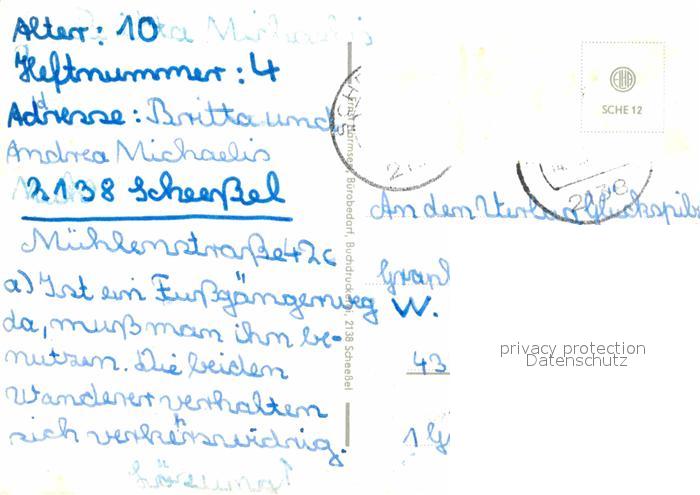 Alter: 10
Heftnummer: 4
Adresse: Britta und
Andrea Michaelis
2138 Scheeßel
Mühlenstraße 42c
a) Ist ein Fußgängerweg
da, muß man ihn be-
nutzen. Die beiden
Wanderer verhalten
sich verkehrswidrig.
Lösung!
Bürobedarf, Buchdruckerei, 2138 Scheeßel
SCHE 12
An den Verlag Glückspilz
W.
43
1
privacy protection
Datenschutz